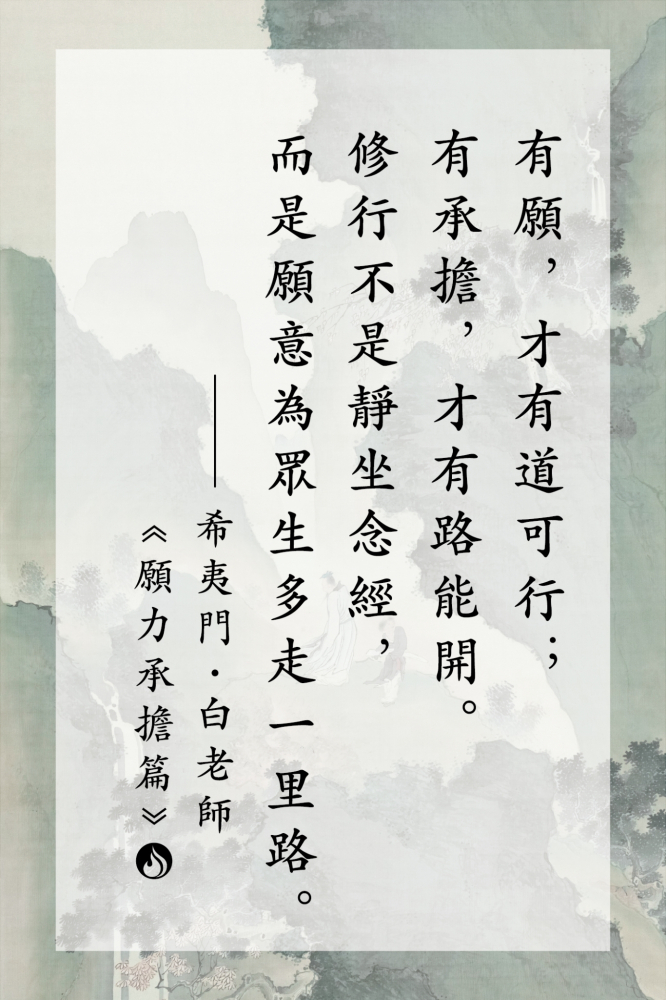 有願，才有道可行；
有承擔，才有路能開。
修行不是靜坐念經，
而是願意為眾生多走一里路。
——希夷門·白老師
《願力承擔篇》